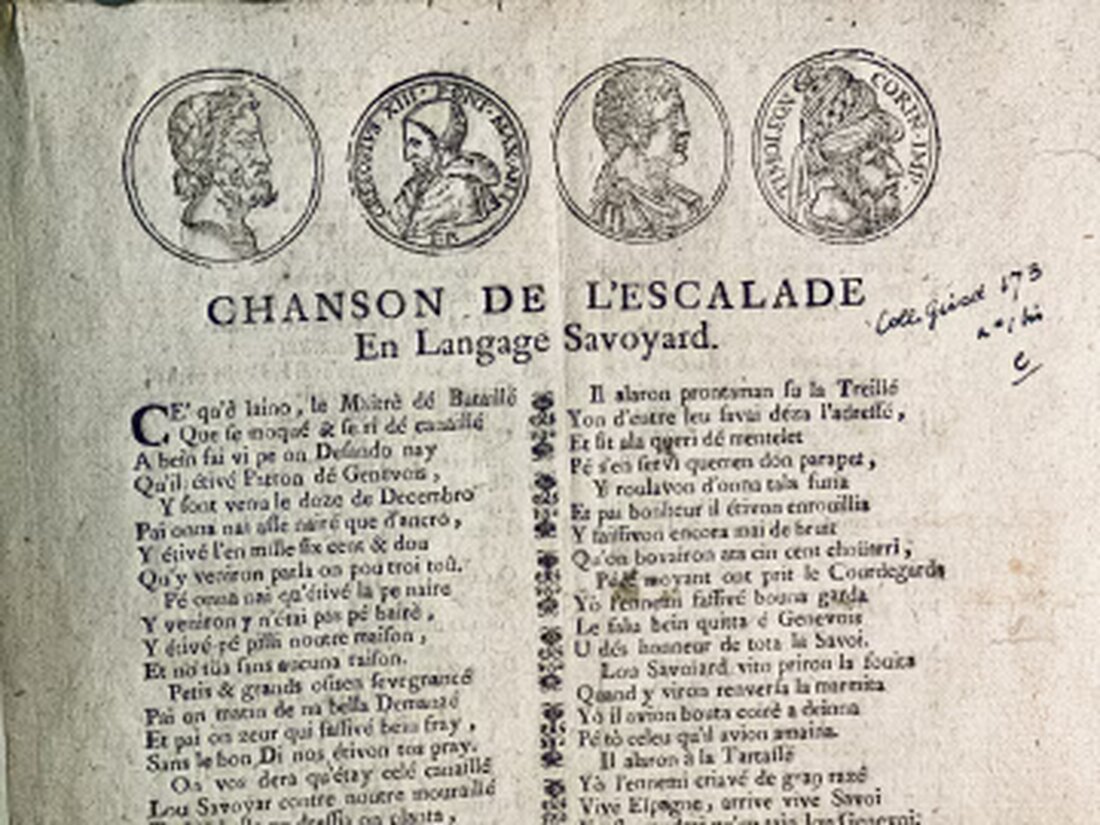 GREGORIVS XIII PONT. MAX. AN.
TIMOLEON CORIN. IMP.
CHANSON DE L'ESCALADE
En Langage Savoyard.
Coll. Girod 173
n° 1 bis
e
CE' qu'è laino, le Maitrè dé Bataillé
Que se moqué & se ri dé canaillé
A bein fai vi pe on Desando nay
Qu'il étivé Patron dé Genevois,
Y sont venu le doze de Decembro
Pai onna nai asse naire que d'ancro,
Y étivé l'en mille six cent & dou
Qu'y veniron parla on pou troi toû.
Pé onna nai qu'étivé la pe naire
Y veniron y n'étai pas pé bairè,
Y étivé pé pilli noutre maison,
Et no tüa sans aucuna raison.
Petis & grands osisen sevegrancé
Pai on matin de na bella Demanzé
Et pai on zeur qui fassivé beau fray,
Sans le bon Di nos étivon tos pray.
On vos dera qu'étay celé canaillé
Lou Savoyar contre noutre mouraillé
Il alaron prontaman su la Treillé
Yon d'entre leu savai déza l'adressé,
Et sit ala queri dé mentelet
Pé s'en servi quemen don parapet,
Y roulavon d'onna tala furia
Et pai bonheur il étivon enrouillia
Y faissivon encora mai de bruit
Qu'on bovairon ara cin cent
moyant ont prit le Courdegarda
Yô l'ennemi fassivé bouna garda
Le falu bein quitta é Genevois
U dés honneur de tota la Savoi.
Lou Savoiard vito priron la fouita
Quand y viron renversa la marmita
Yô il avion bouta coirè a deinna
Pé tô celeu qu'il avion amaina.
Il alaron à la Tartaſſé
Yô l'ennemi criavé de gran razé
Vivé Espagne, arrive vive Savoi